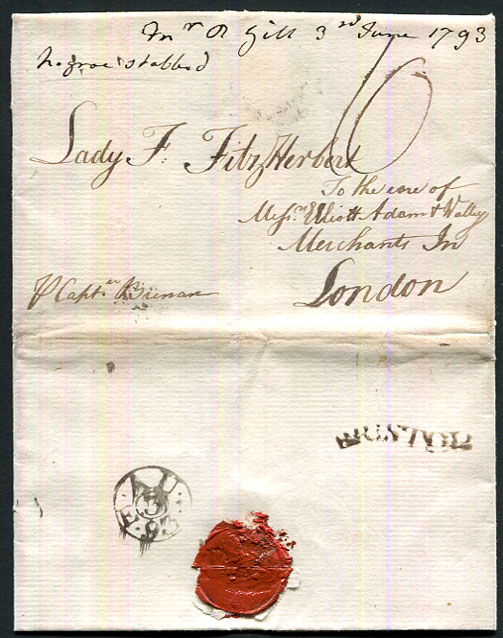 Mr R Gill 3rd June 1793
Negroe stabbed
6
Lady F: FitzHerbert
To the care of
Messrs Elliott Adam & Walley
Merchants In
London
P Captn Brenan
BRISTOL
AU
5
93